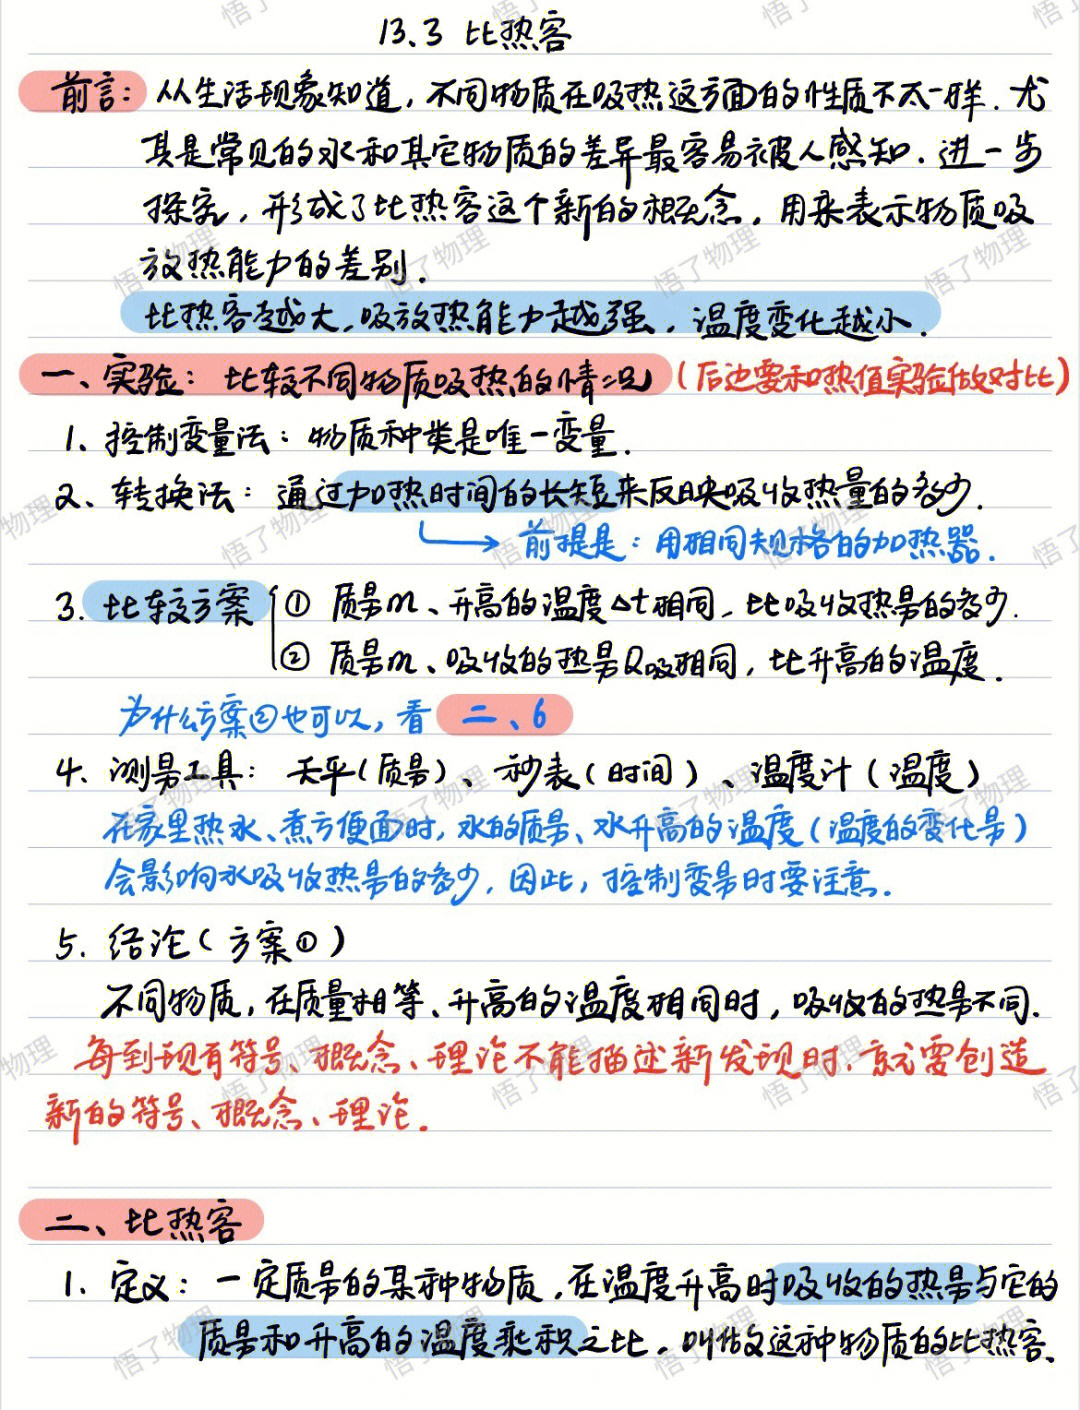 13.3 比热容
前言：从生活现象知道，不同物质在吸热这方面的性质不太一样．尤
其是常见的水和其它物质的差异最容易被人感知．进一步
探究，形成了比热容这个新的概念，用来表示物质吸
放热能力的差别．
比热容越大，吸放热能力越强，温度变化越小．
一、实验：比较不同物质吸热的情况（后边要和热值实验做对比）
1、控制变量法：物质种类是唯一变量．
2、转换法：通过加热时间的长短来反映吸收热量的多少．
前提是：用相同规格的加热器．
3．比较方案 ① 质量m、升高的温度Δt相同，比吸收热量的多少．
② 质量m、吸收的热量Q吸相同，比升高的温度．
为什么方案②也可以，看 二、6
4、测量工具：天平（质量）、秒表（时间）、温度计（温度）
在家里热水、煮方便面时，水的质量、水升高的温度（温度的变化量）
会影响水吸收热量的多少，因此，控制变量时要注意．
5．结论（方案①）
不同物质，在质量相等、升高的温度相同时，吸收的热量不同．
每到现有符号、概念、理论不能描述新发现时，就需要创造
新的符号、概念、理论．
二、比热容
1．定义：一定质量的某种物质，在温度升高时吸收的热量与它的
质量和升高的温度乘积之比，叫做这种物质的比热容．
悟了物理